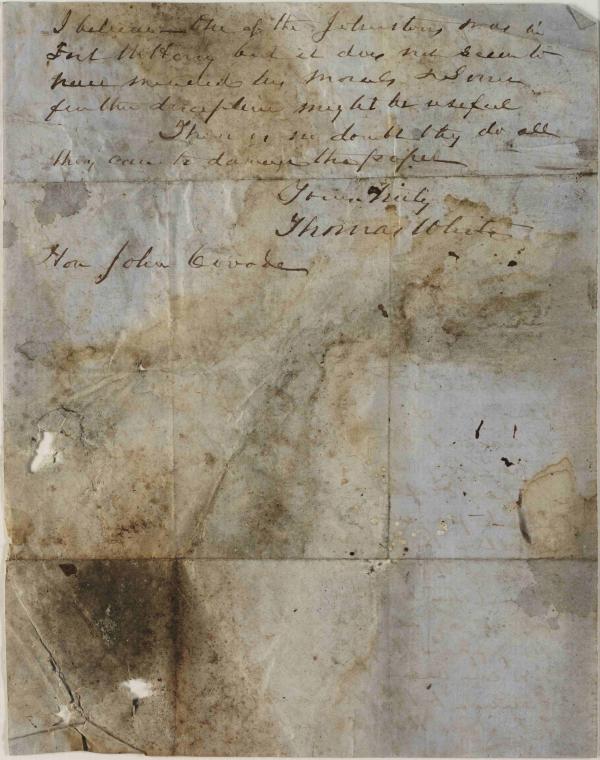 I believe one of the Johnstons was in
Fort McHenry but it does not seem to
have mended his morals & Some
further discipline might be useful
There is no doubt they do all
they can to damage the paper
Yours Truly
Thomas White
Hon John Covode